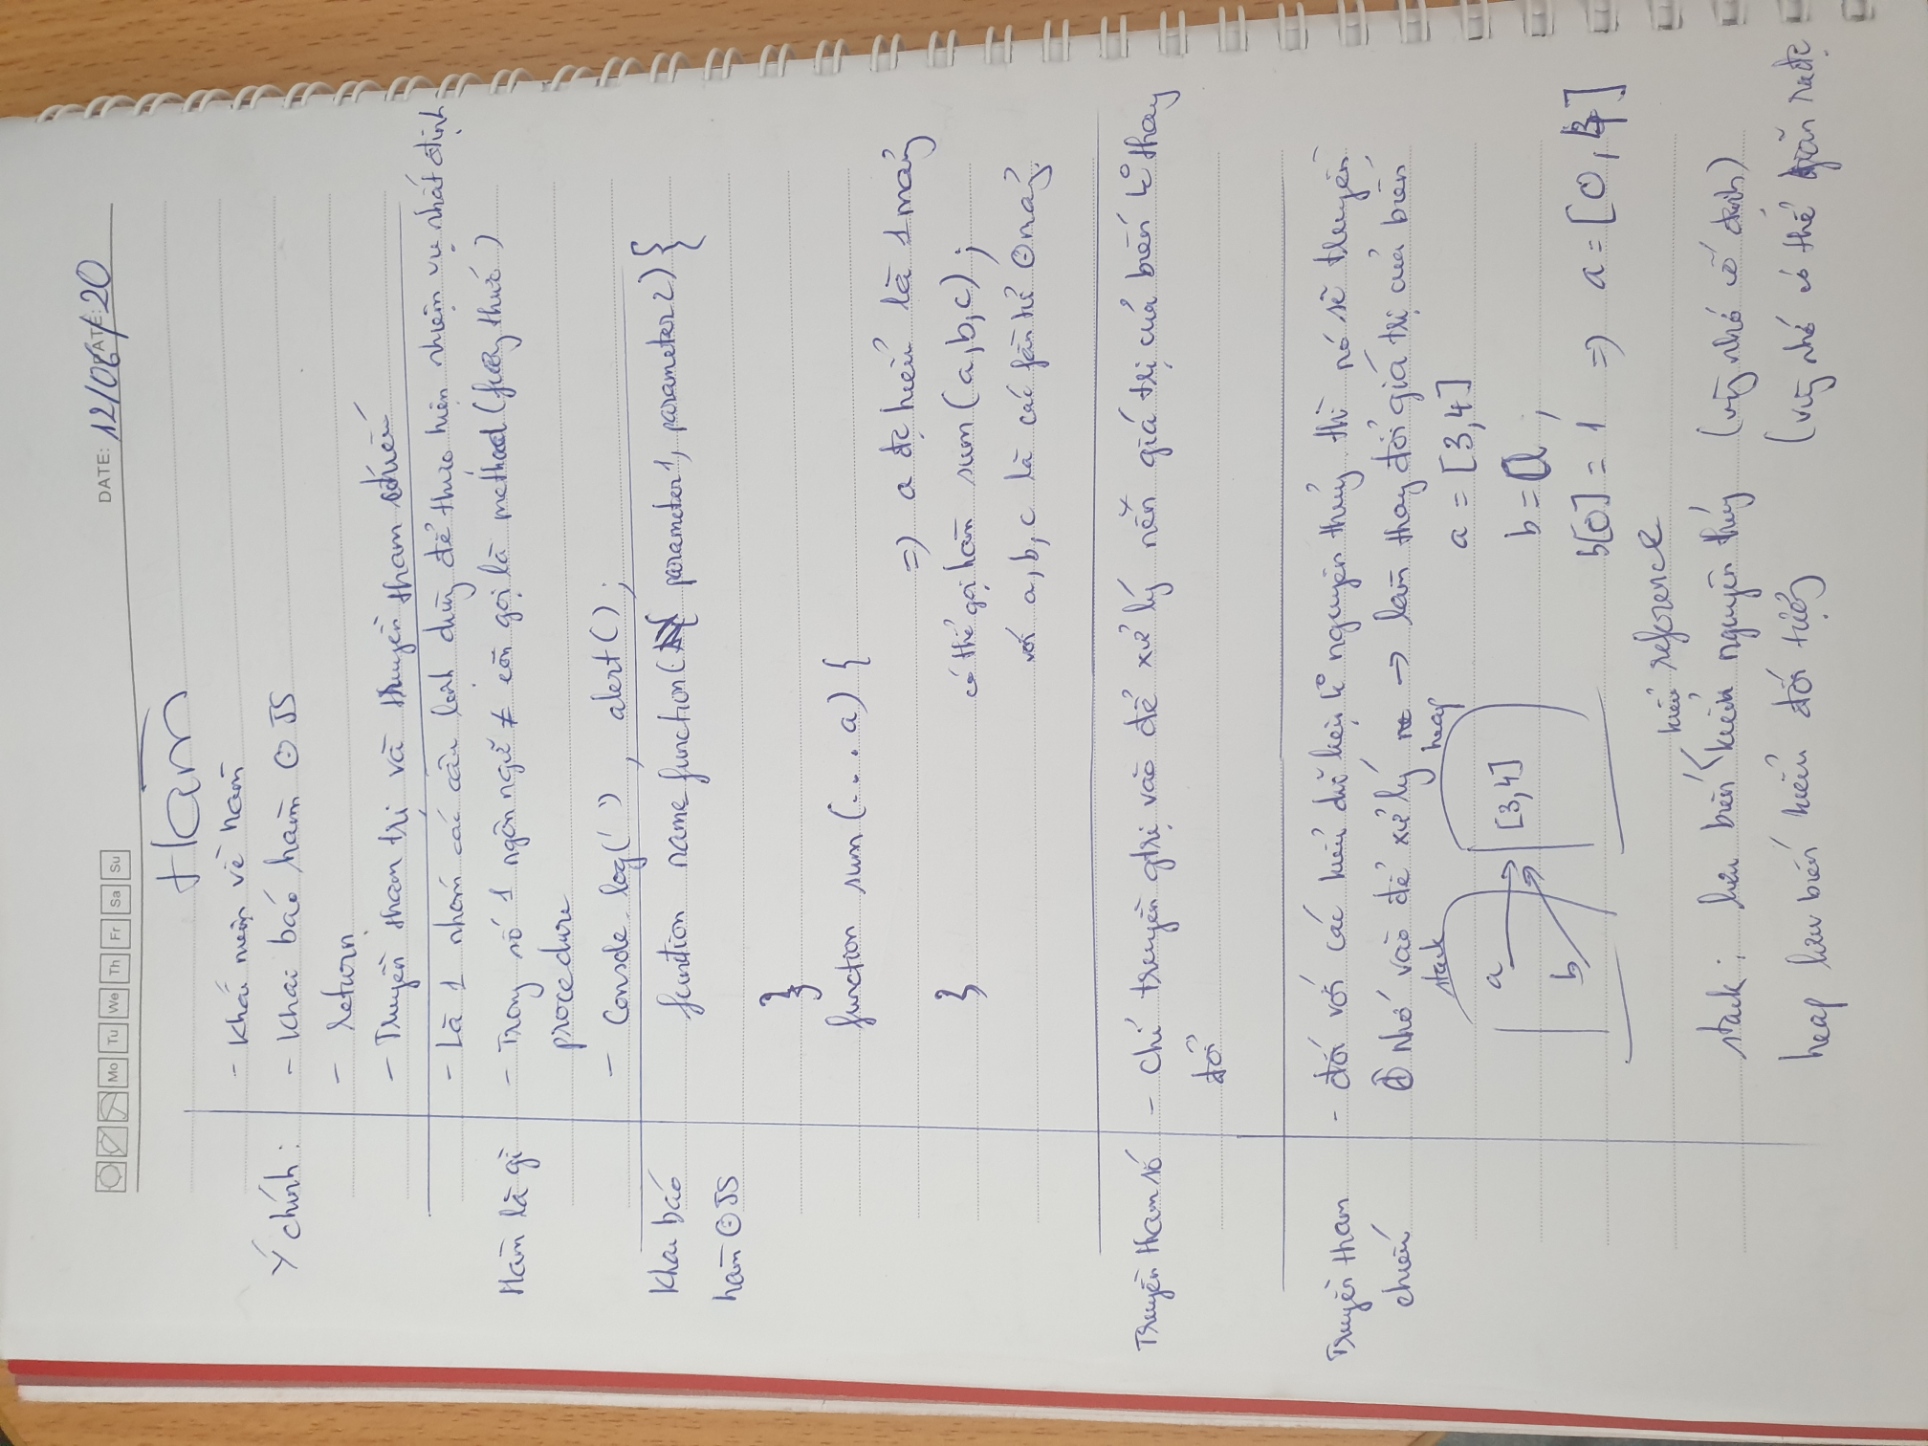 Mo Tu We Th Fr Sa Su
DATE: 12/06/20
Hàm
- Khái niệm về hàm
Ý chính:
- Khai báo hàm ⊙ JS
- return
- Truyền tham trị và truyền tham chiếu
- Là 1 nhóm các câu lệnh dùng để thực hiện nhiệm vụ nhất định
Hàm là gì
- Trong số 1 ngôn ngữ ≠ còn gọi là method (fương thức)
procedure
- Console.log(' '), alert();
Khai báo
hàm ⊙ JS
function namefunction( parameter1, parameter2) {
}
function sum (...a) {
=> a đc hiểu là 1 mảng
}
có thể gọi hàm sum (a,b,c);
với a, b, c là các fần tử ⊙ mảng.
Truyền tham số
- Chỉ truyền gtrị vào để xử lý nên giá trị của biến ko thay
đổi
Truyền tham
chiếu
- đối với các kiểu dữ liệu ko nguyên thủy thì nó sẽ truyền
nhớ vào để xử lý → làm thay đổi giá trị của biến
stack heap
a [3,4]
b
a = [3,4]
b = a;
b[0] = 1 => a = [0, 4]
kiểu reference
stack: lưu biến kiểu nguyên thủy (vùng nhớ cố định)
heap lưu biến kiểu đối tượng (vùng nhớ có thể giãn ra đc